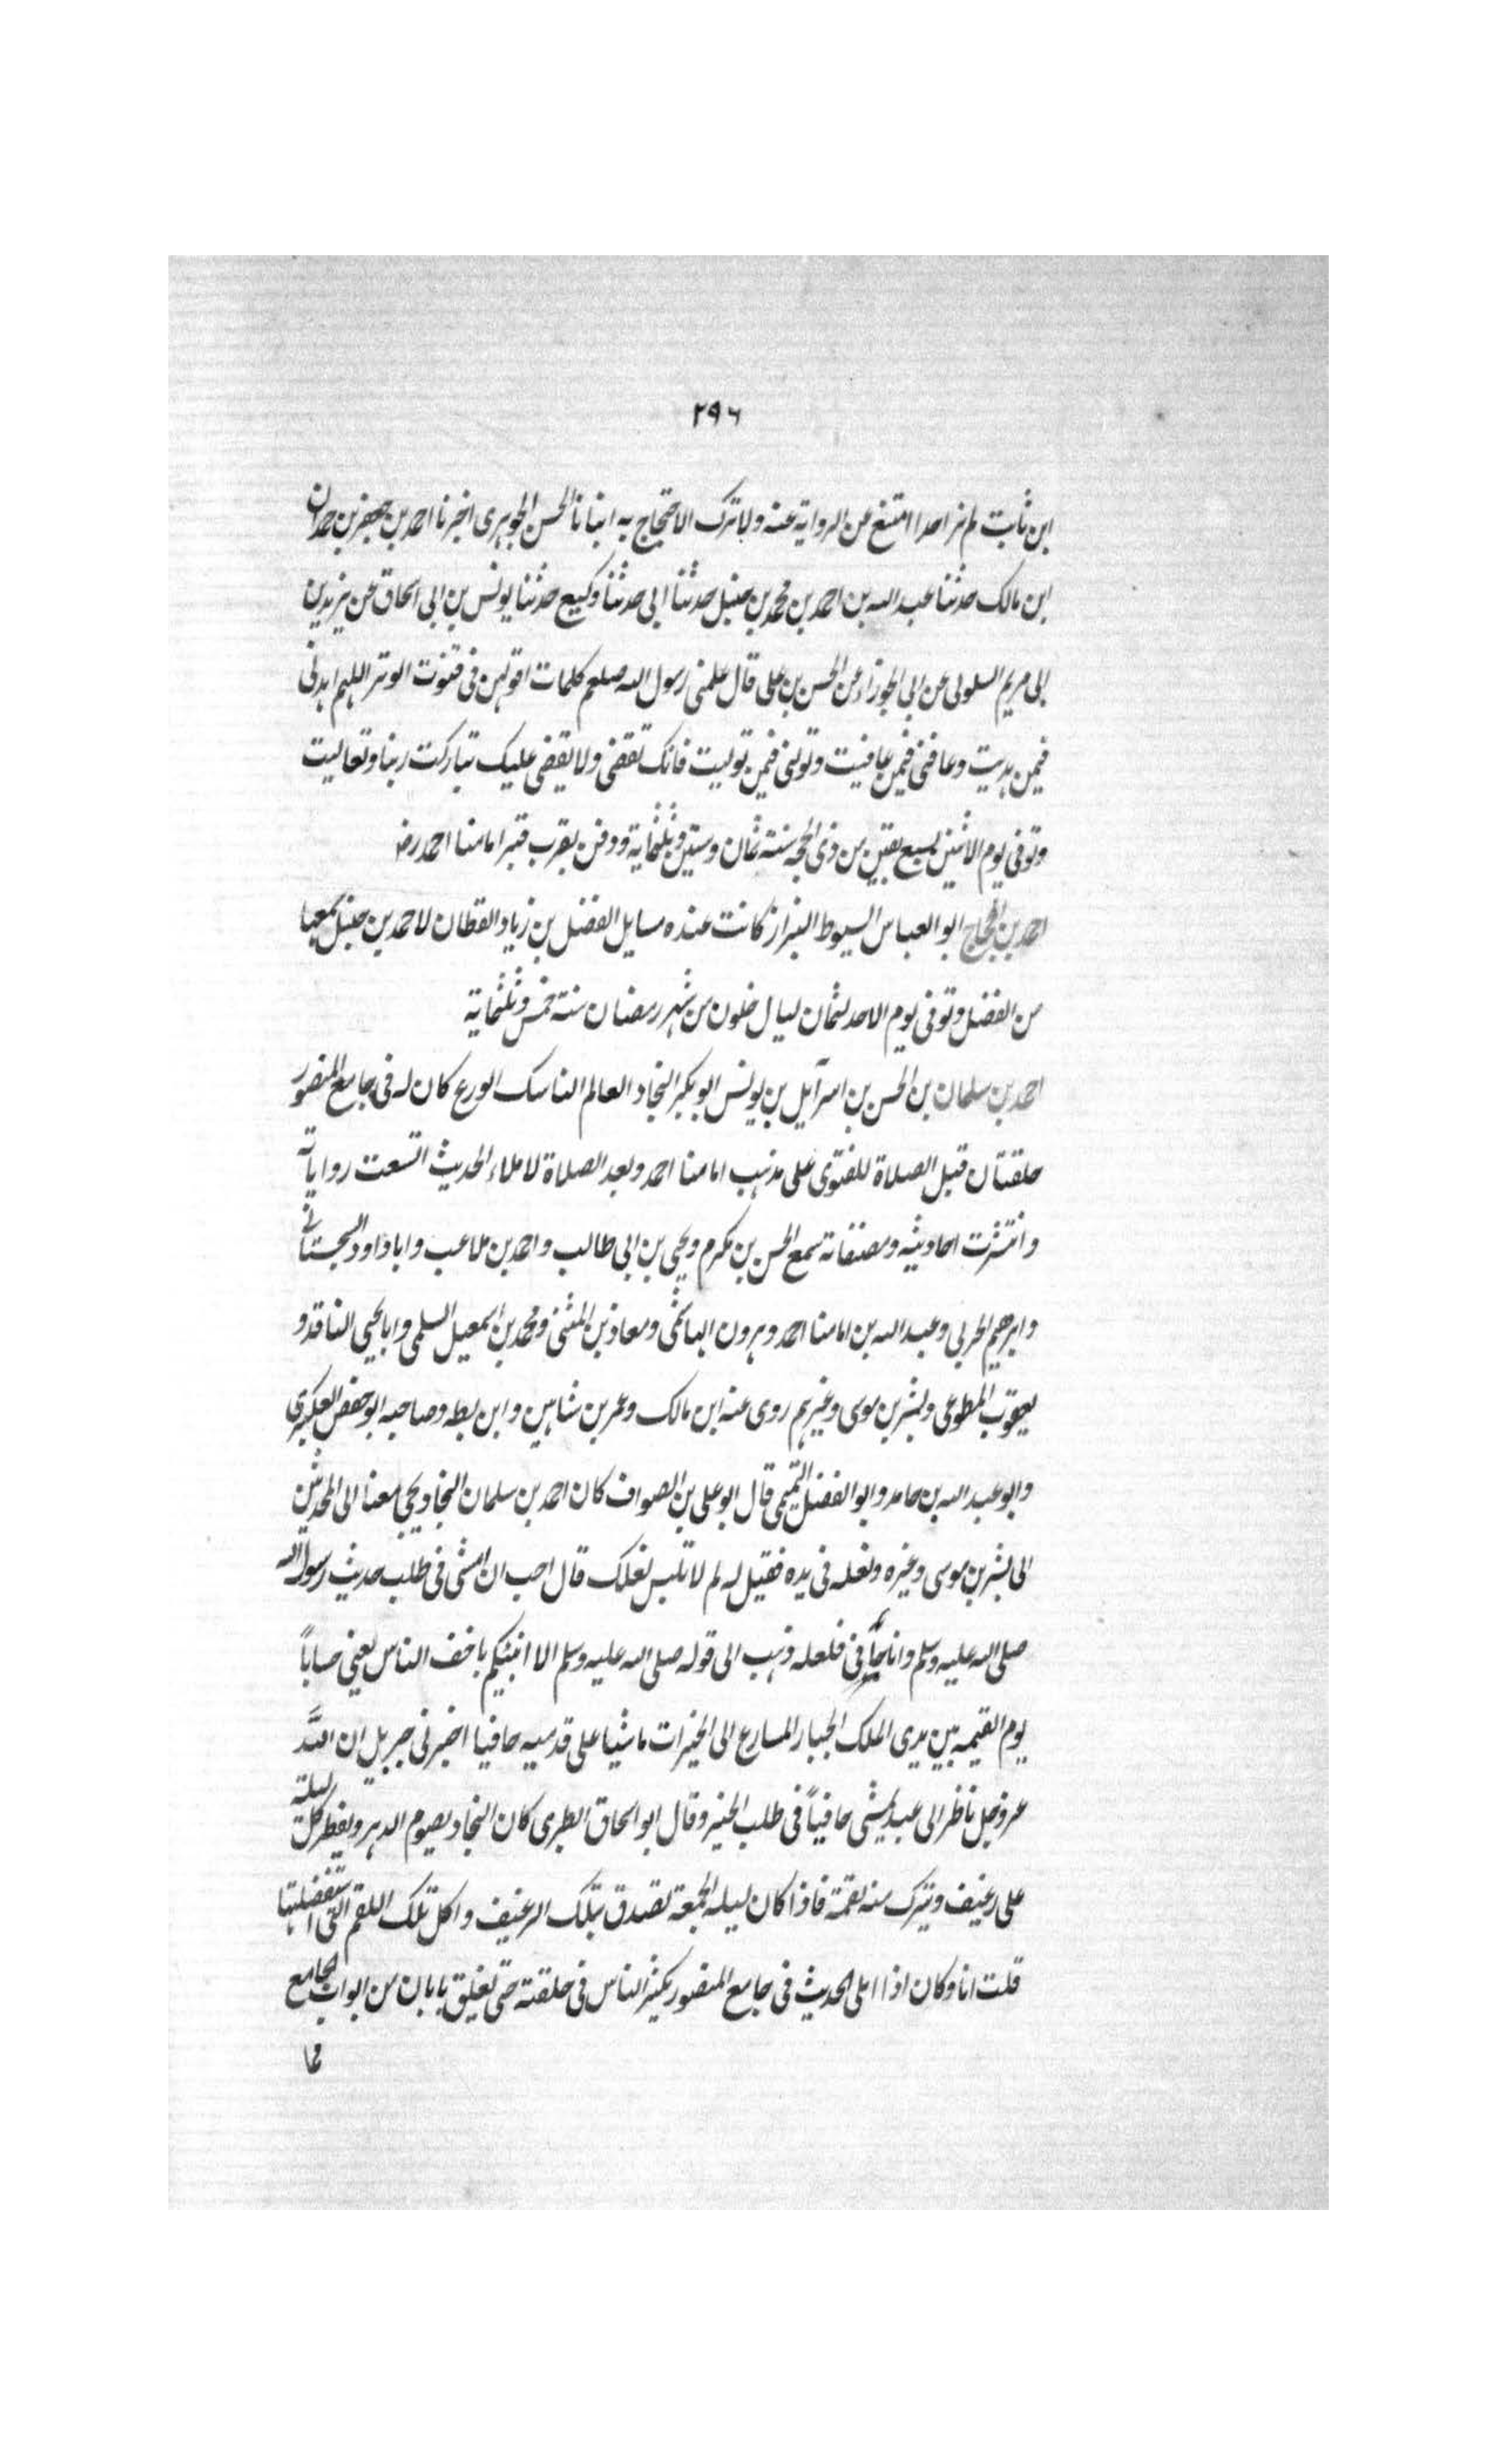 ٢٩٦
ابن ثابت لم نر احدا امتنع من الرواية عنه ولا ترك الاحتجاج به انبانا الحسن الجوهرى اخبرنا احمد بن جعفر بن حمدان
ابن مالك حدثنا عبد الله بن احمد بن محمد بن حنبل حدثنا ابى حدثنا وكيع حدثنا يونس بن ابى اسحاق عن بريد بن
ابى مريم السلولى عن ابى الجوزاء عن الحسن بن على قال علمنى رسول الله صلعم كلمات اقولهن فى قنوت الوتر اللهم اهدنى
فيمن هديت وعافنى فيمن عافيت وتولنى فيمن توليت فانك تقضى ولا يقضى عليك تباركت ربنا وتعاليت
وتوفى يوم الاثنين لسبع بقين من ذى الحجه سنة ثمان وستين وثلثماية ودفن بقرب قبر امامنا احمد رضـ
احمد بن الحجاج ابو العباس السيوط البزاز كانت عنده مسايل الفضل بن زياد القطان لاحمد بن حنبل سمعها
من الفضل وتوفى يوم الاحد لثمان ليال خلون من شهر رمضان سنة خمس وثلثماية
احمد بن سلمان بن الحسن بن اسرآيل بن يونس ابو بكر النجاد العالم الناسك الورع كان له فى جامع المنصور
حلقتان قبل الصلاة للفتوى على مذهب امامنا احمد وبعد الصلاة لاملاء الحديث اتسعت رواياته
وانتشرت احاديثه ومصنفاته سمع الحسن بن مكرم ويحيى بن ابى طالب واحمد بن ملاعب واباداود السجستانى
وابرهيم الحربى وعبد الله بن امامنا احمد وهرون الهاشمى ومعاذ بن المثنى ومحمد بن اسمعيل السلمى وابا يحيى الناقد و
يعقوب المطوعى وبشر بن موسى وغيرهم روى عنه ابن مالك وعمر بن شاهين وابن بطه وصاحبه ابو حفص العكبرى
وابو عبد الله بن حامد وابو الفضل التميمى قال ابو على بن الصواف كان احمد بن سلمان النجاد يجى معنا الى المحدثين
الى بشر بن موسى وغيره ونعله فى يده فقيل له لم لا تلبس نعلك قال احب ان امشى فى طلب حديث رسول الله
صلى الله عليه وسلم وانا حافى فلعله ذهب الى قوله صلى الله عليه وسلم الا انبئكم باخف الناس يعنى حساباً
يوم القيمه بين يدى الملك الجبار المسارع الى الخيرات ماشيا على قدميه حافيا اخبرنى جبريل ان الله
عز وجل ناظر الى عبد يمشى حافياً فى طلب الخير وقال ابو اسحاق الطبرى كان النجاد يصوم الدهر ويفطر كل ليلة
على رغيف ويترك منه لقمة فاذا كان ليله الجمعة تصدق بتلك الرغيف واكل تلك اللقم التى استفضلها
قلت انا وكان اذا املى الحديث فى جامع المنصور يكثر الناس فى حلقته حتى تغلق بابان من ابواب الجامع
مما